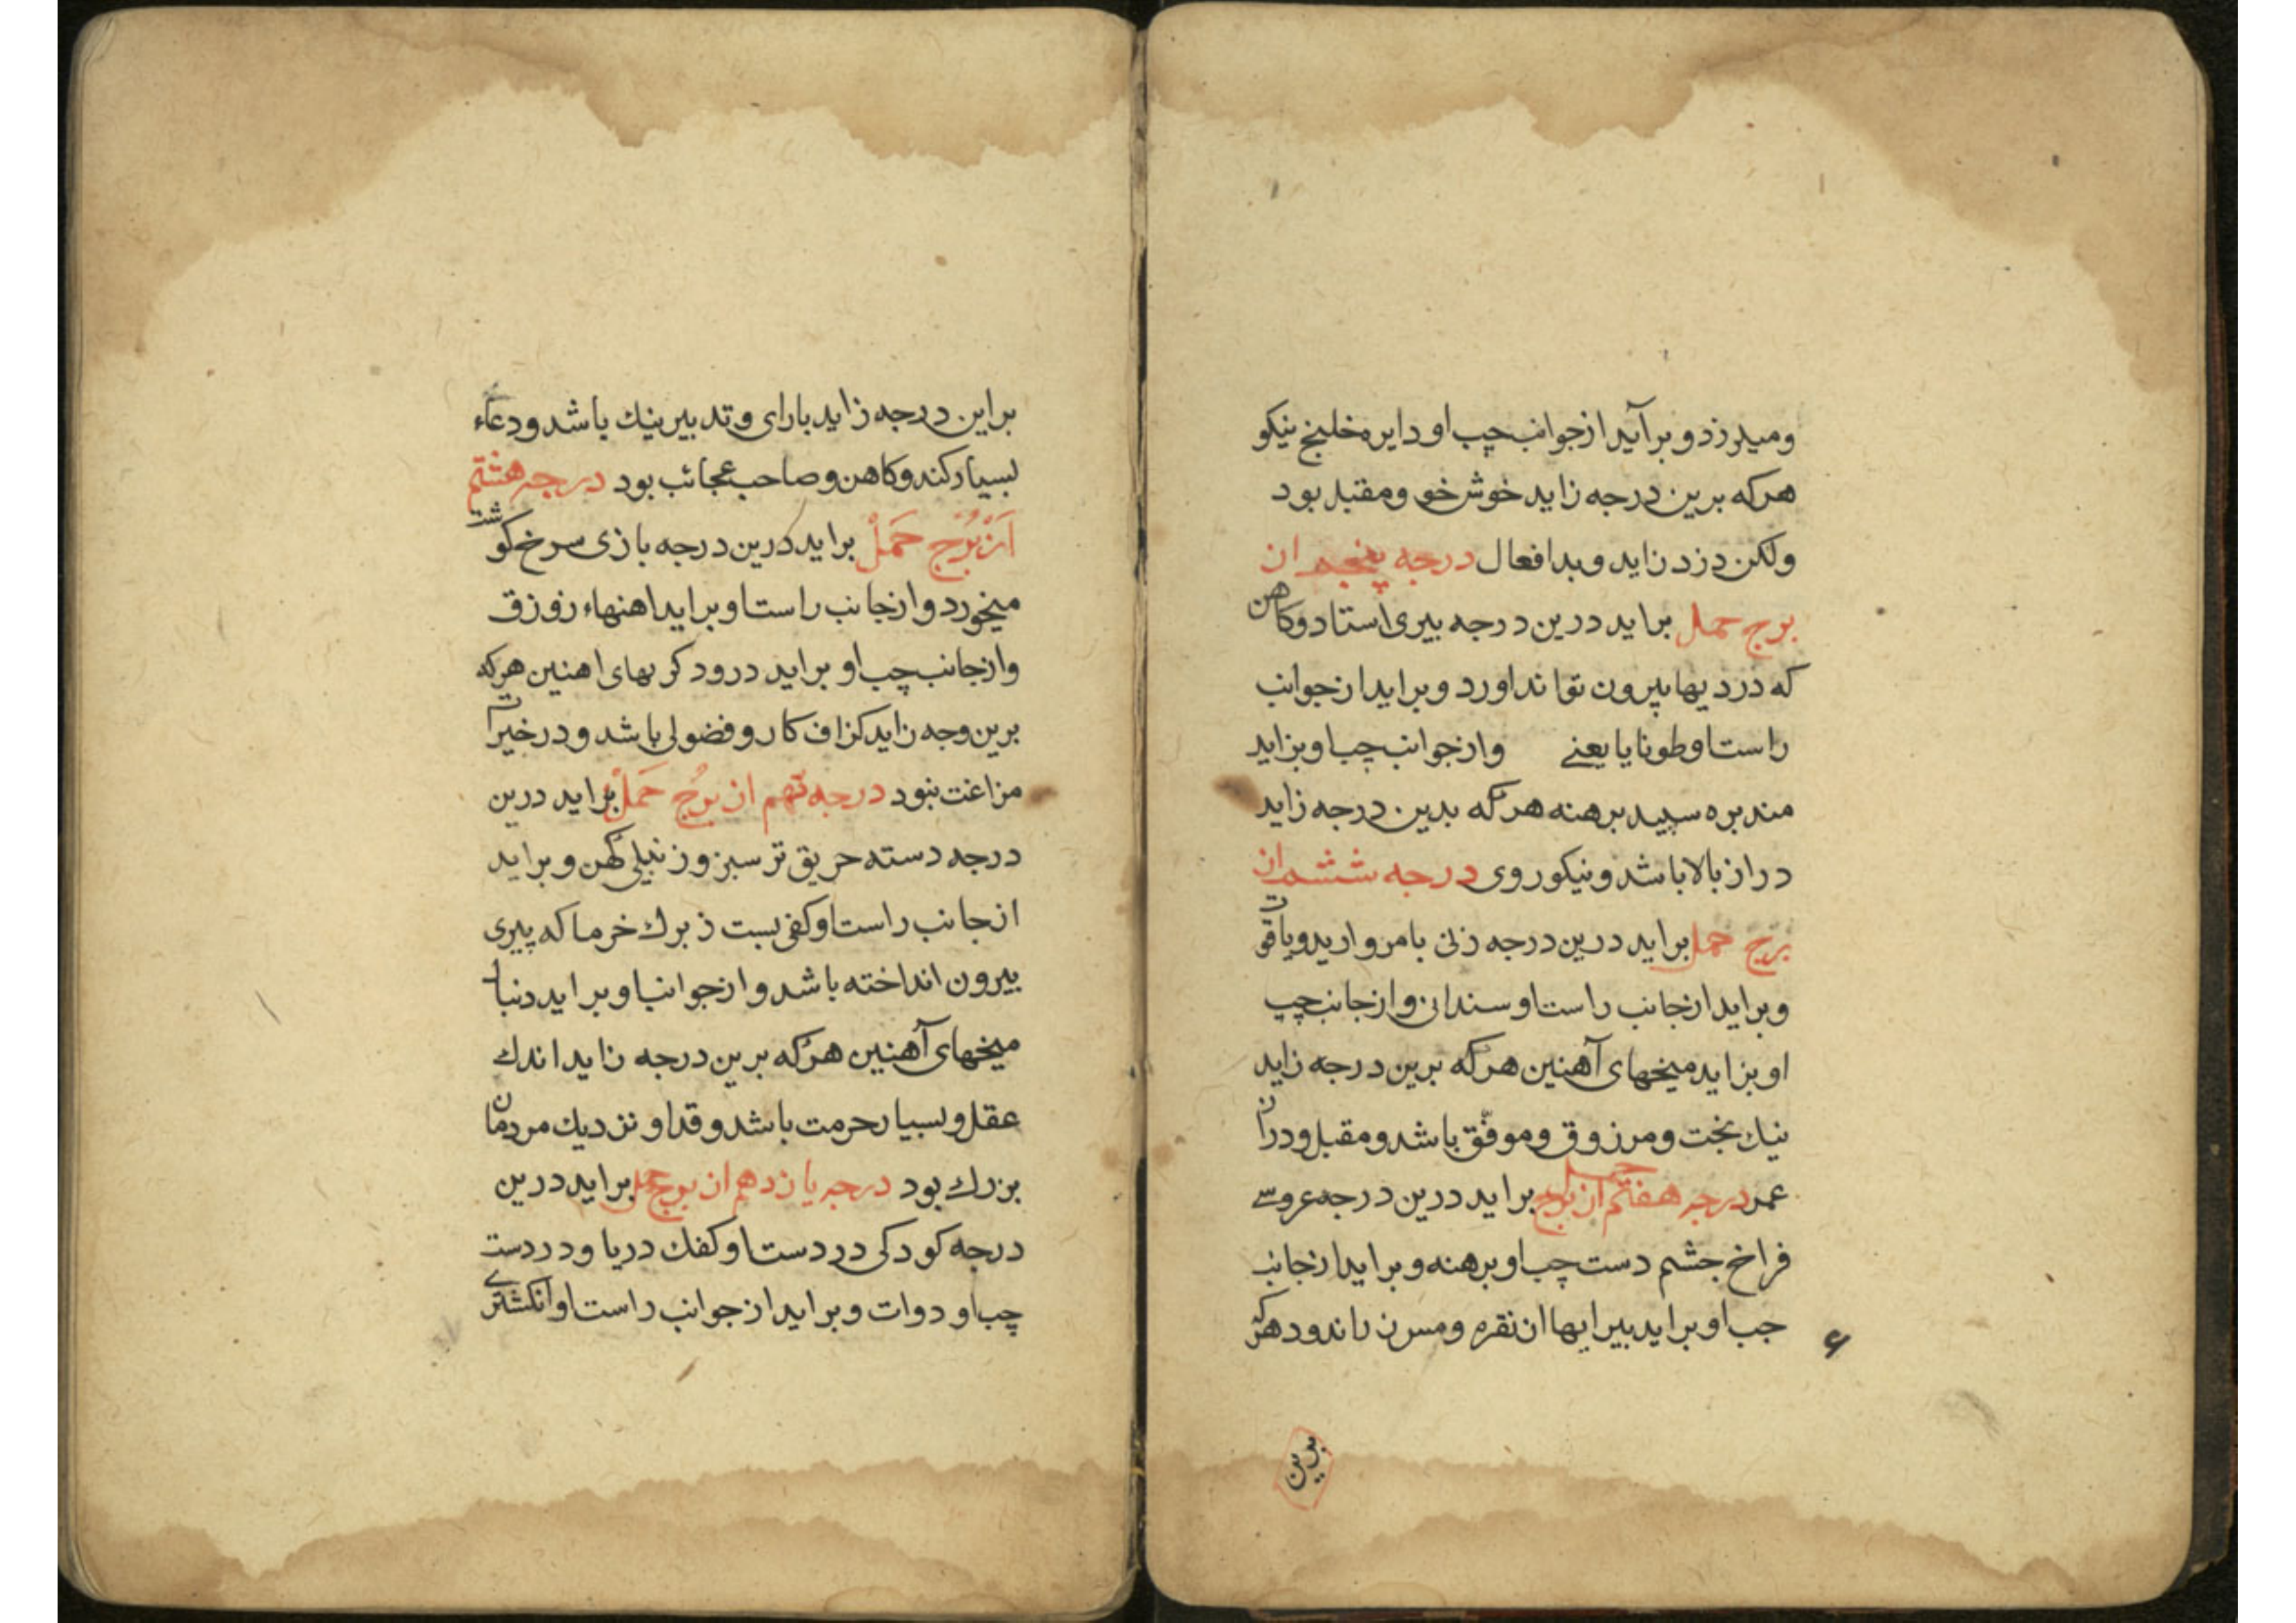 ومیلرزد و برآید از جوانب چپ او دایره خلیخ نیکو
هرکه برین درجه زاید خوش خو و مقبل بود
ولکن دزد زاید و بد افعال درجه پنجم از
برج حمل براید درین درجه پیری استاد و کاهن
که درد یها بیرون تواند اورد و براید از جوانب
راست او طونایا یعنے وازجوانب چپ او بزاید
مند بره سپید برهنه هرکه بدین درجه زاید
دراز بالا باشد و نیکو روی درجه ششم از
برج حمل براید درین درجه زنی با مروارید و یاقوت
و براید از جانب راست او سندانی و از جانب چپ
او بزاید میخهای آهنین هرکه برین درجه زاید
نیك بخت و مرزوق و موفّق باشد و مقبل و دراز
عمر درجه هفتم از برج حمل براید درین درجه عروسے
فراخ جشم دست چپ او برهنه و براید از جانب
جب او براید بیرایها از نقره و مس زراندود هرکه
۶
بدین
براین درجه زاید بارای و تدبیر نیك باشد و دعاء
بسیار کند و کاهن و صاحب عجائب بود درجه هشتم
اَز بُرج حَمَلْ براید درین درجه بازی سرخ کوشت
میخورد و ازجانب راست او براید اهنهاء زورق
وازجانب چپ او براید درود کریهای اهنین هرکه
برین وجه زاید کزاف کار و فضولی باشد و در خیرات
مزاغت نبود درجه نهم از برُج حَمَلْ براید درین
درجه دسته حریق تر سبز و زنبیلی کهن و براید
ازجانب راست او کفی بست ز برك خرما که پیری
بیرون انداخته باشد و از جوانب او براید دنبا
میخهای آهنین هرکه برین درجه زاید اندك
عقل و بسیار حرمت باشد و قد او نزدیك مردمان
بزرك بود درجه یازدهم از برج حمل براید درین
درجه کودکی در دست او کفك دریا و در دست
چب او دوات و براید از جوانب راست او انکشترے